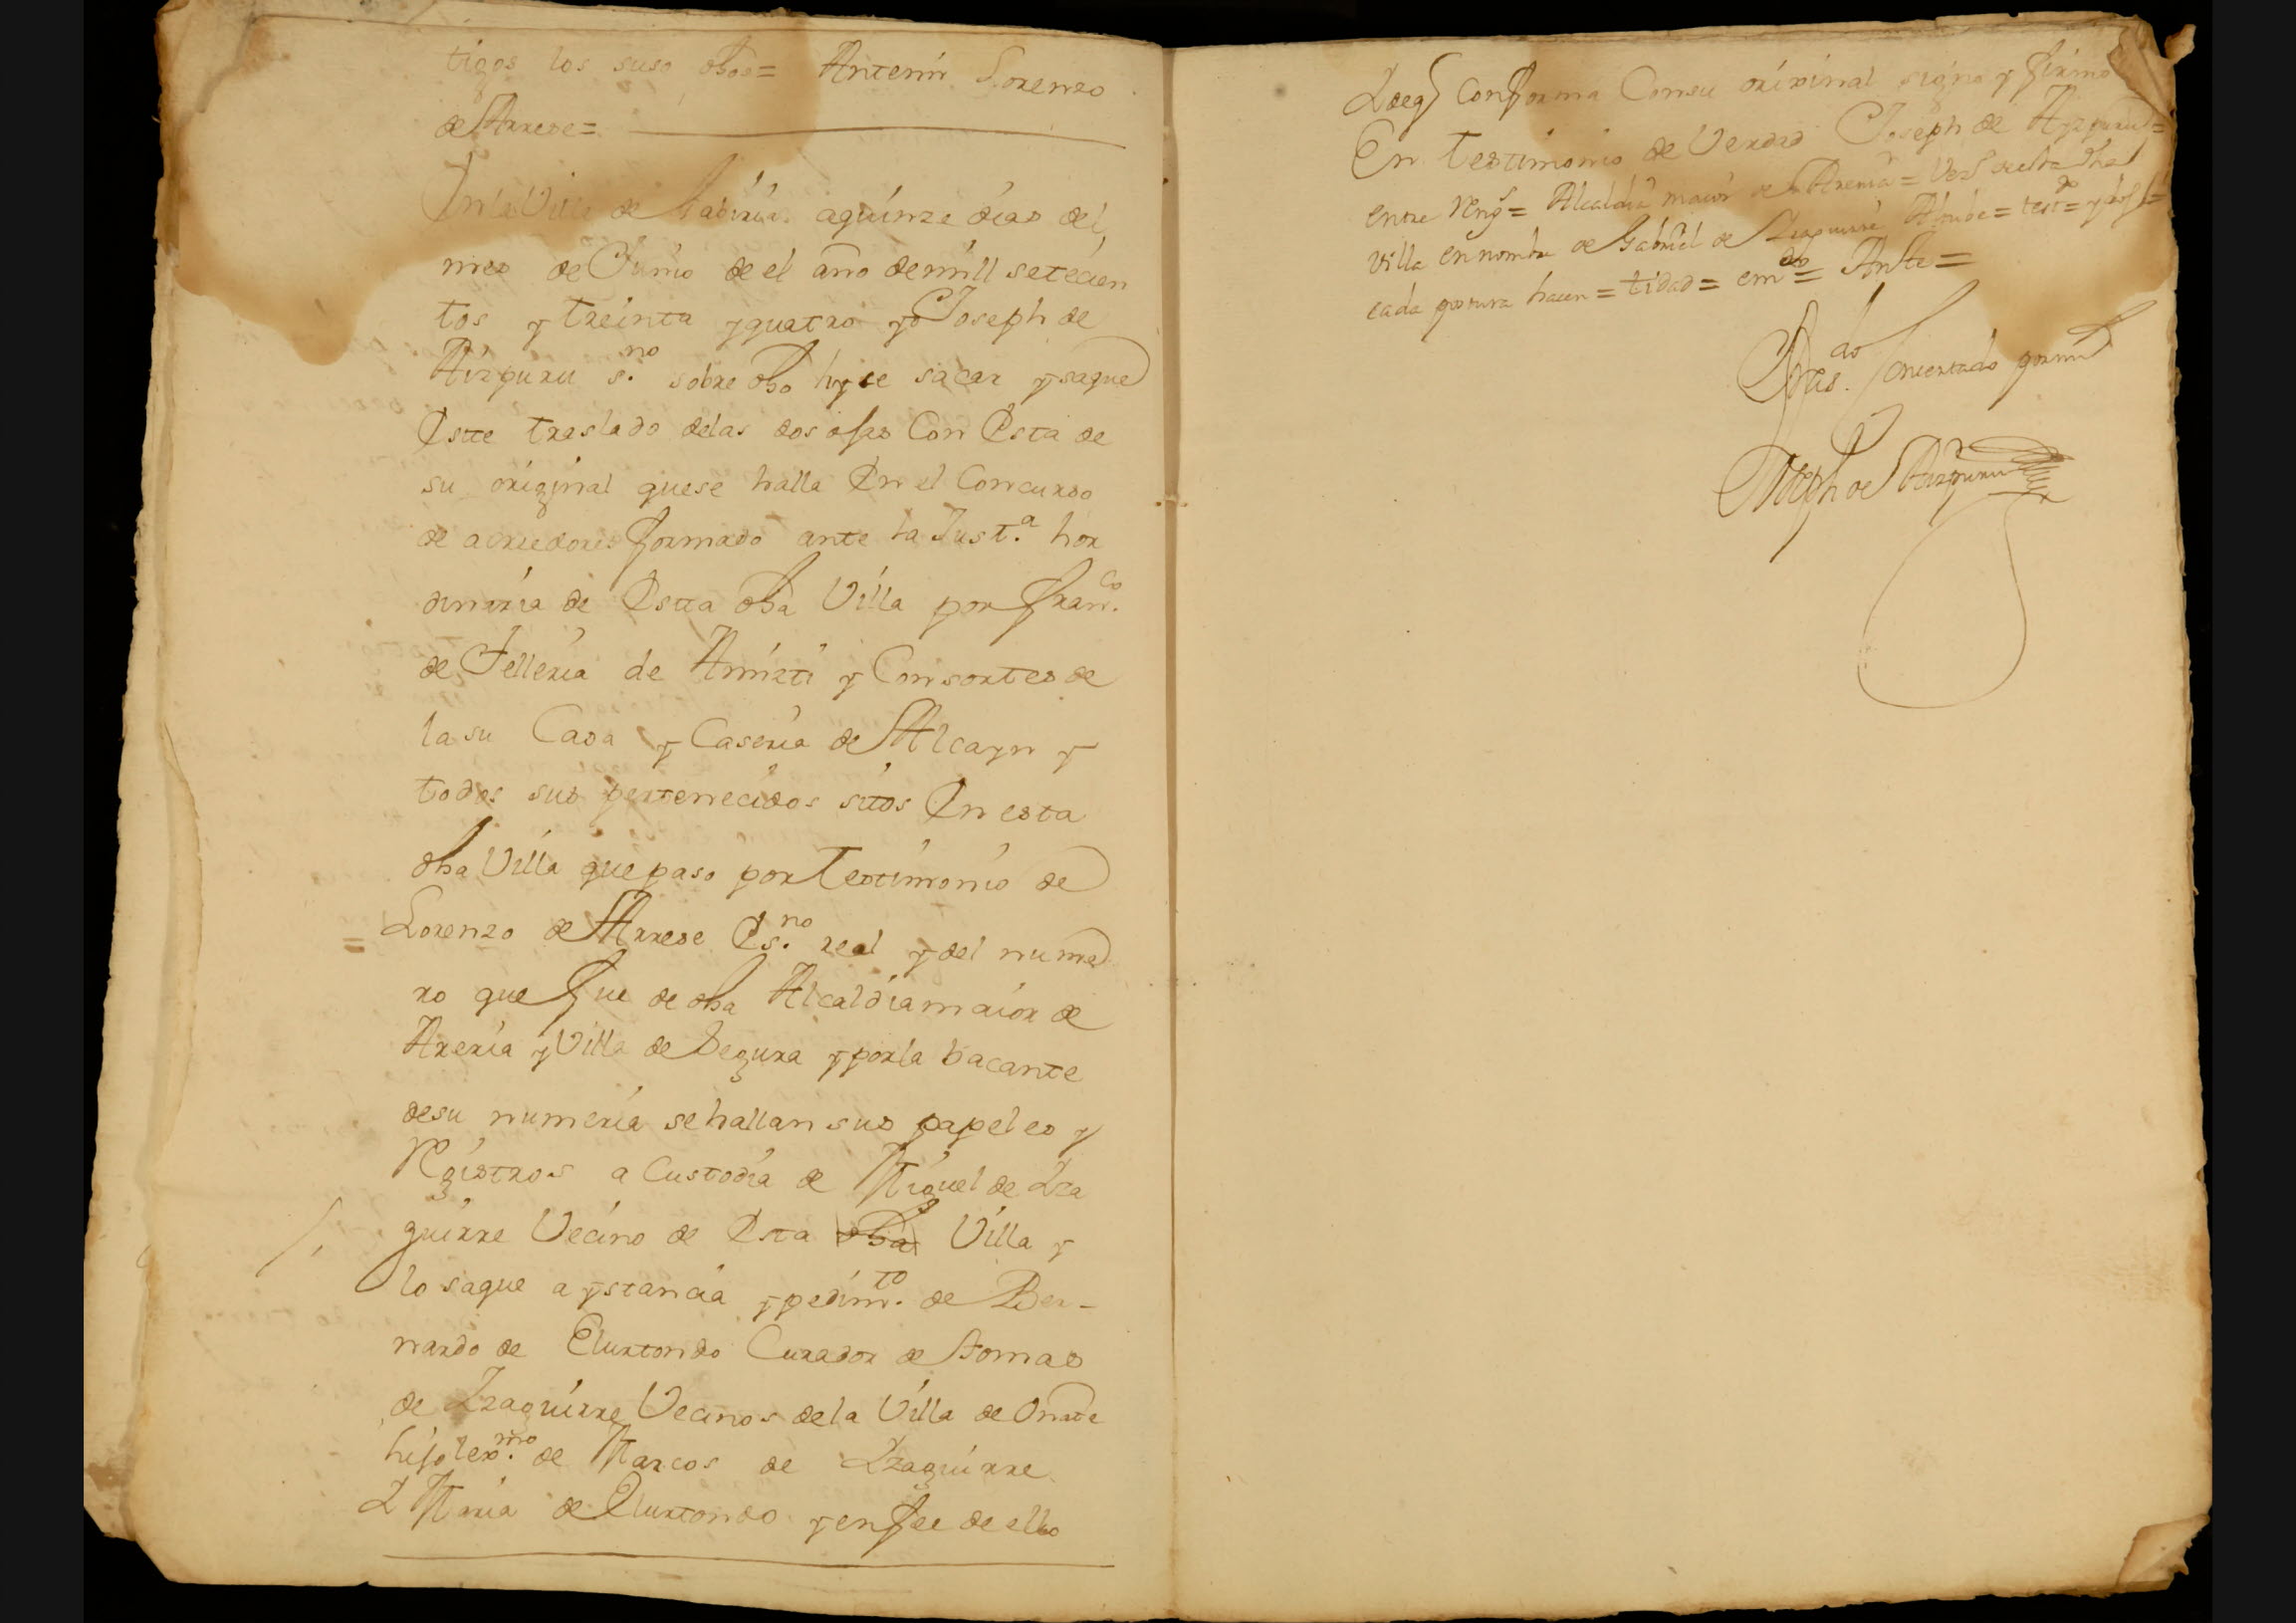 tigos los suso dhos= Antemi Lorenzo
de Arrese=
En la Villa de Gabiria aquinze dias del
mes de Junio de el año demill setecien
tos y treinta yquatro yo Joseph de
Aizpuru s.no sobre dho hyce sacar ysaque
Este traslado delas dos ojas Con Esta de
su original quese halla En el Concurso
de acreedores formado ante la Just.a hor
dinaria de Esta dha Villa por Fran.co
de Telleria de Amizti y Consortes de
la su Casa y Caseria de Alcayn y
todos sus pertenecidos sitos En esta
dha Villa que paso por Testimonio de
= Lorenzo de Arrese Es.no real y del nume
ro que fue de dha Alcaldia maior de
Areria y Villa de Segura y porla bacante
desu numeria sehallan sus papeles y
Registros a Custodia de Miguel de Yza
guirre Vecino de Esta dha Villa y
lo saque a ystancia y pedim.to de Ber-
nardo de Elurtondo Curador de Tomas
de Yzaguirre Vecinos dela Villa de Oñate
hijo lex.mo de Marcos de Yzaguirre
Y Maria de Elurtondo y enfee de ello
Conforma Consu orixinal signo y firmo
En Testimonio de Verdad Joseph de Aizpuru=
entre Reng.s= Alcaldia maior de Areria=
Villa en nombre de Gabriel de Yzaguirre = test.do=
cada postura hacen = tidad= em.do= Ante=
Concertado por mi
Joseph de Aizpuru